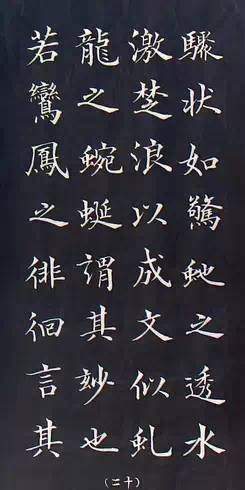 驟状如驚虵之透水
激楚浪以成文似虬
龍之蜿蜒謂其妙也
若鸞鳳之徘徊言其
(二十)